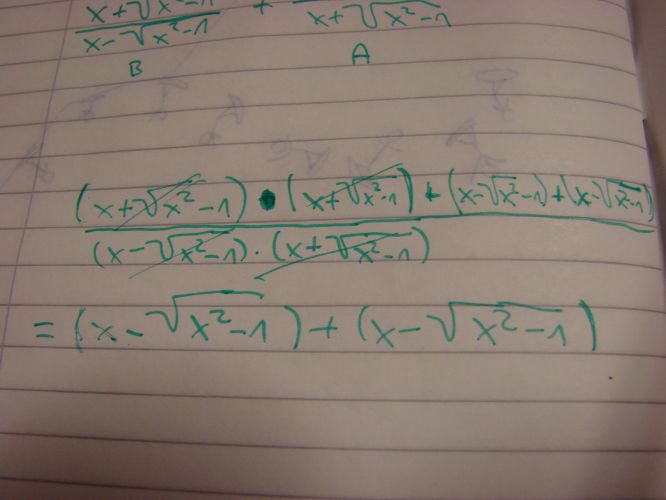 x+√x²-1 + 
x-√x²-1 x+√x²-1
B A
(x+√x²-1) • (x+√x²-1) + (x-√x²-1)+(x-√x²-1)
(x-√x²-1) · (x+√x²-1)
= (x-√x²-1) + (x-√x²-1)